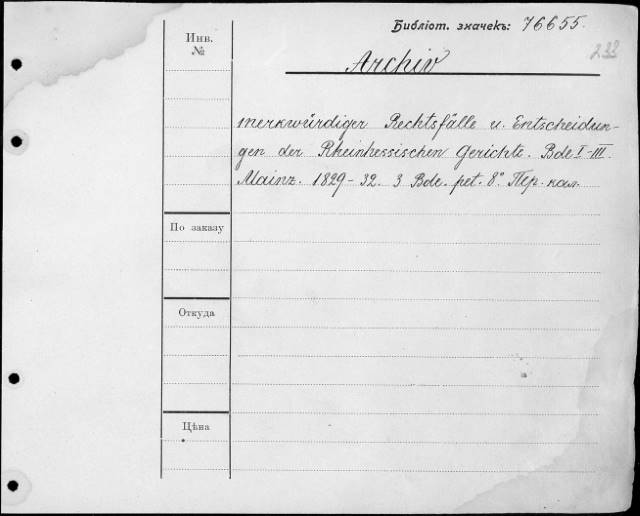 Библіот. значекъ: 76655.
233
Инв.
№
Archiv
merkwürdiger Rechtsfälle u. Entscheidun-
gen der Rheinhessischen Gerichte. Bde I-III.
Mainz. 1829-32. 3 Bde. pet. 8° Пер. кол.
По заказу
Откуда
Цѣна